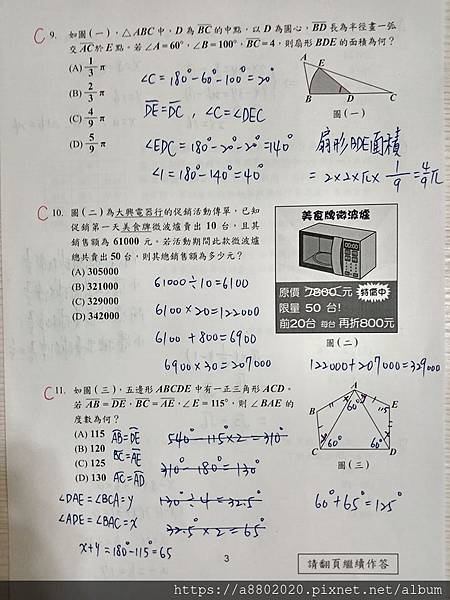 C 9. 如圖(一)，△ABC中，D 為 BC的中點，以 D 為圓心，BD長為半徑畫一弧
交 AC於 E 點。若∠A=60°，∠B=100°，BC=4，則扇形 BDE 的面積為何？
(A) 1/3 π
(B) 2/3 π
(C) 4/9 π
(D) 5/9 π
∠C=180°-60°-100°=20°
DE=DC，∠C=∠DEC
∠EDC=180°-20°-20°=140°
∠1=180°-140°=40°
A
E
1
B D C
圖(一)
扇形BDE面積
=2×2×π×1/9=4/9π
C 10. 圖(二)為大興電器行的促銷活動傳單，已知
促銷第一天美食牌微波爐賣出 10 台，且其
銷售額為 61000 元。若活動期間此款微波爐
總共賣出 50 台，則其總銷售額為多少元？
(A) 305000
(B) 321000
(C) 329000
(D) 342000
61000÷10=6100
6100×20=122000
6100+800=6900
6900×30=207000
美食牌微波爐
原價 7800 元 特價中
限量 50 台!
前20台 每台 再折800元
圖(二)
122000+207000=329000
C 11. 如圖(三)，五邊形 ABCDE 中有一正三角形 ACD。
若 AB=DE，BC=AE，∠E=115°，則∠BAE 的
度數為何？
(A) 115
(B) 120
(C) 125
(D) 130
AB=DE
BC=AE
AC=AD
∠DAE=∠BCA=y
∠ADE=∠BAC=x
x+y=180°-115°=65
540°-115°×2=310°
310°-180°=130°
130°÷4=32.5°
32.5°×2=65°
A
B E
x 60° y
115
C 60° 60° D
圖(三)
60°+65°=125°
3
請翻頁繼續作答
https://a8802020.pixnet.net/album